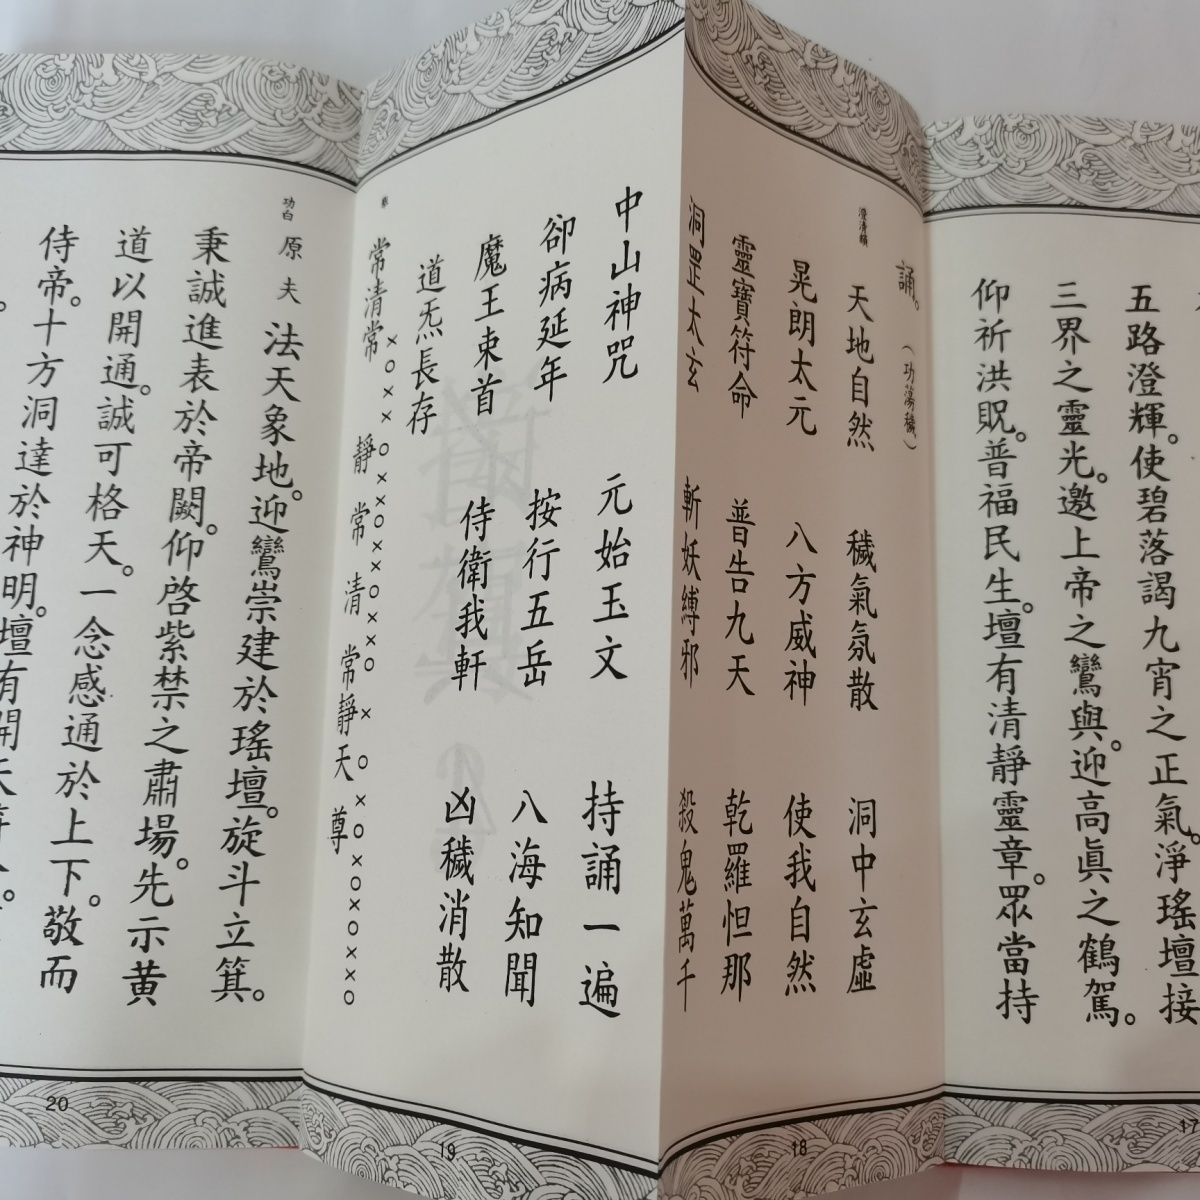 五路澄輝。使碧落謁九宵之正氣。淨瑤壇接
三界之靈光。邀上帝之鸞與。迎高眞之鶴駕。
仰祈洪貺。普福民生。壇有清靜靈章。眾當持
17
誦。（功蕩穢）
天地自然 穢氣氛散 洞中玄虛
晃朗太元 八方威神 使我自然
靈寶符命 普告九天 乾羅怛那
洞罡太玄 斬妖縛邪 殺鬼萬千
18
中山神咒 元始玉文 持誦一遍
卻病延年 按行五岳 八海知聞
魔王束首 侍衛我軒 凶穢消散
道炁長存
常清常靜常清常靜天尊
19
功白 原夫 法天象地。迎鸞崇建於瑤壇。旋斗立箕。
秉誠進表於帝闕。仰啓紫禁之肅場。先示黃
道以開通。誠可格天。一念感通於上下。敬而
侍帝。十方洞達於神明。壇有開天
20